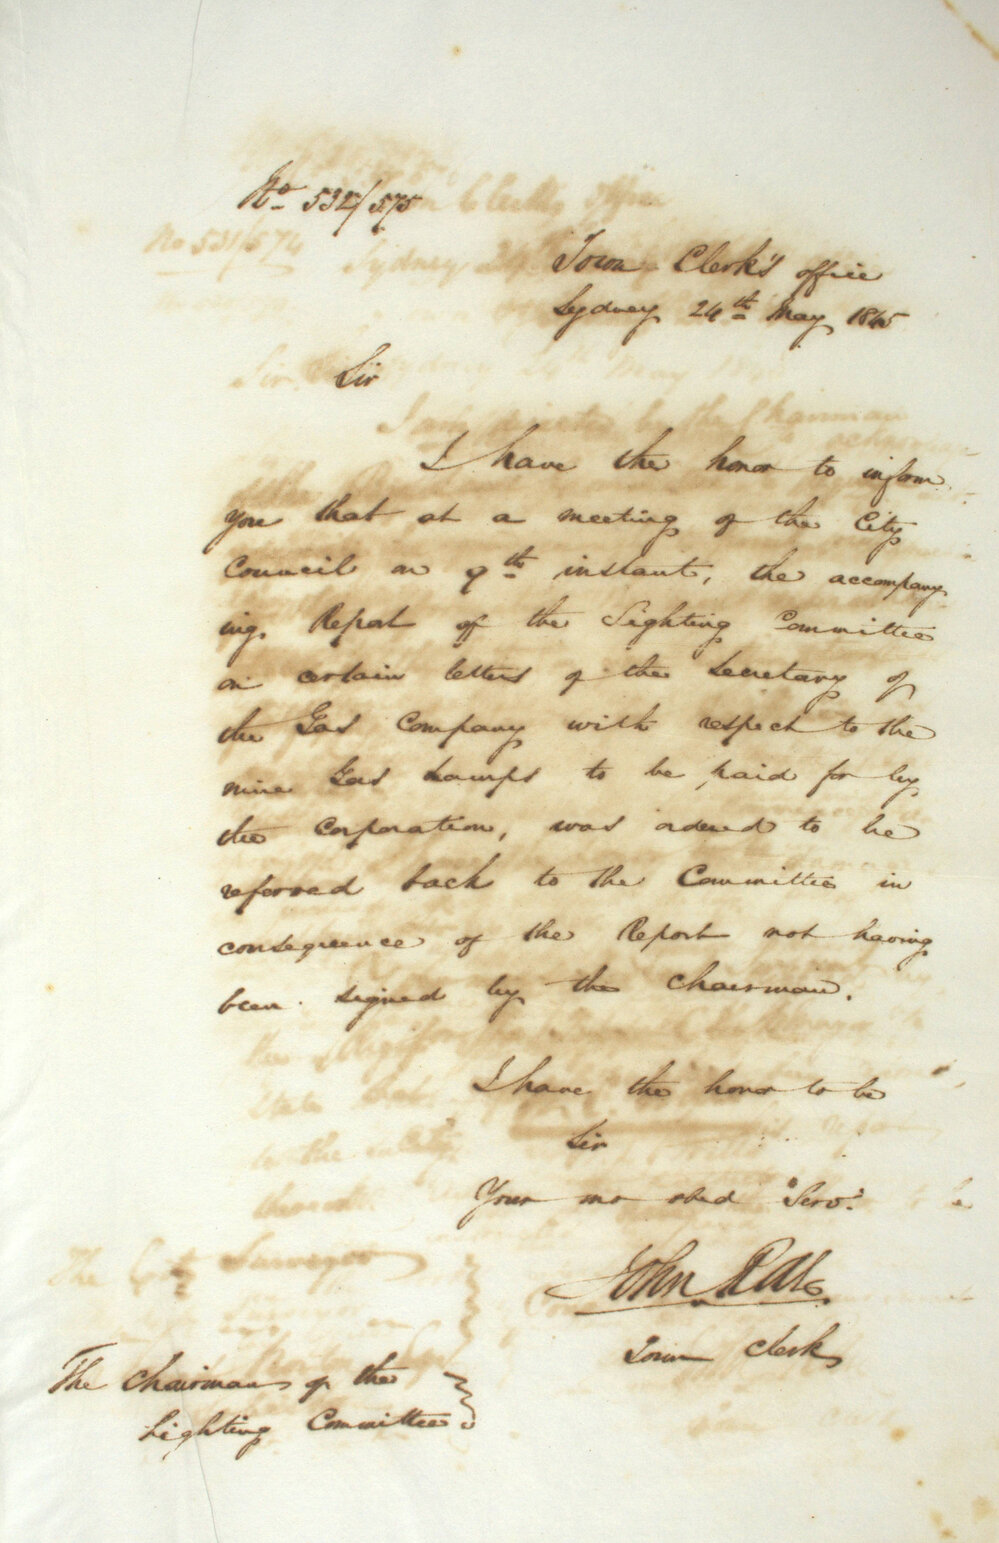 No 532/575
Town Clerk's office
Sydney 24th May 1845
Sir
I have the honor to inform
you that at a meeting of the City
Council on 9th instant, the accompany
ing Report of the Lighting Committee
on certain letters of the Secretary of
the Gas Company with respect to the
nine Gas Lamps to be paid for by
the Corporation, was ordered to be
referred back to the Committee in
consequence of the Report not having
been signed by the Chairman.
I have the honor to be
Sir
Your mo obed Servt
John Rae
Town Clerk
The Chairman of the
Lighting Committee